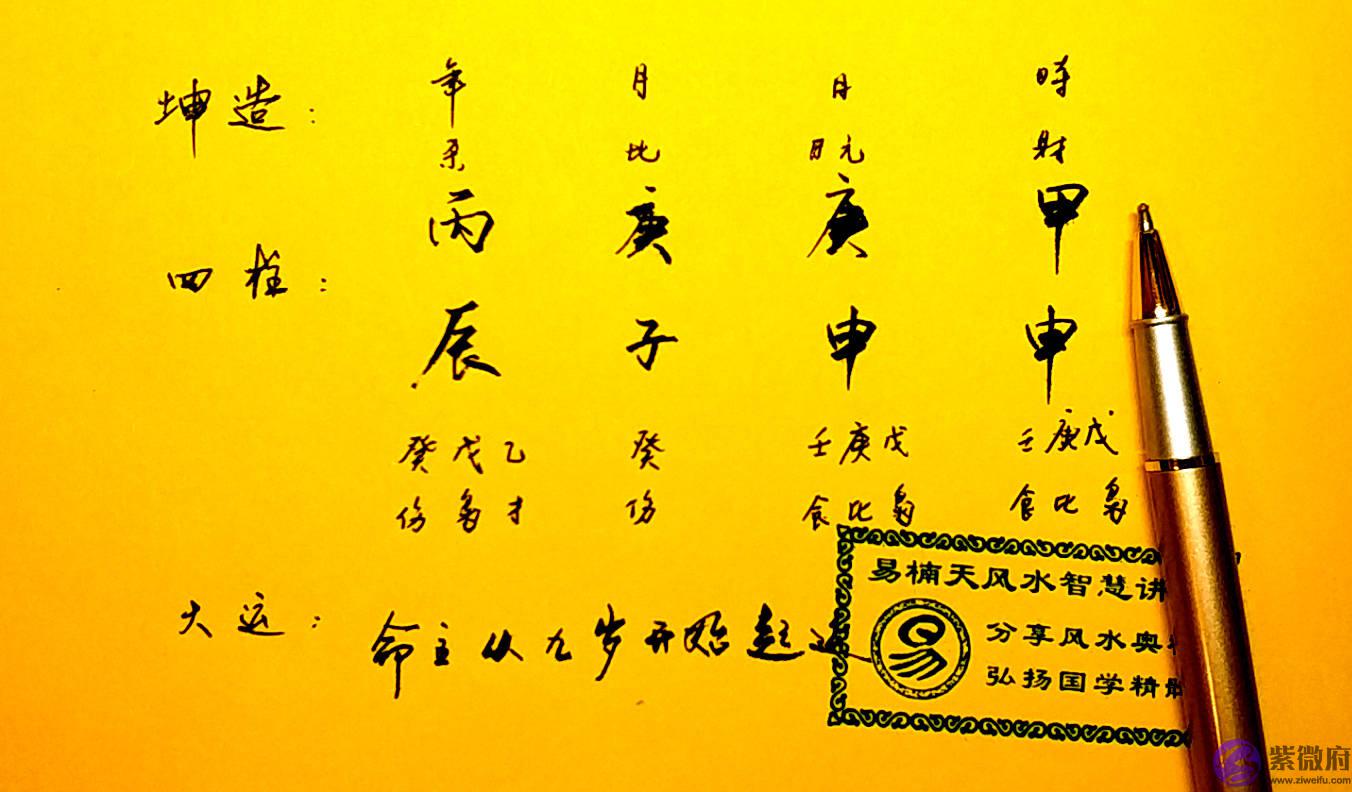 坤造： 年 月 日 时
杀 比 日元 财
四柱： 丙 庚 庚 甲
辰 子 申 申
癸戊乙 癸 壬庚戊 壬庚戊
伤枭才 伤 食比枭 食比枭
大运： 命主从九岁开始起
易楠天风水智慧讲
分享风水奥
易
弘扬国学精
紫微府
www.ziweifu.com